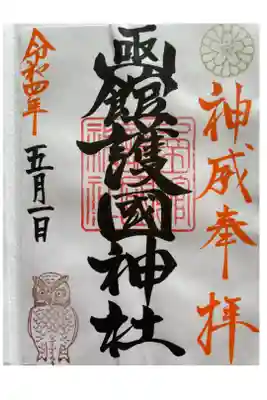 神威奉拝
凾館護國神社
令和四年
五月一日